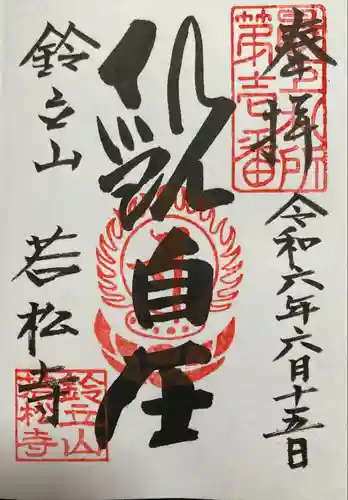 最上札所
第壱番
奉拝
令和六年六月十五日
観自在
鈴立山
若松寺
鈴立山
若松寺